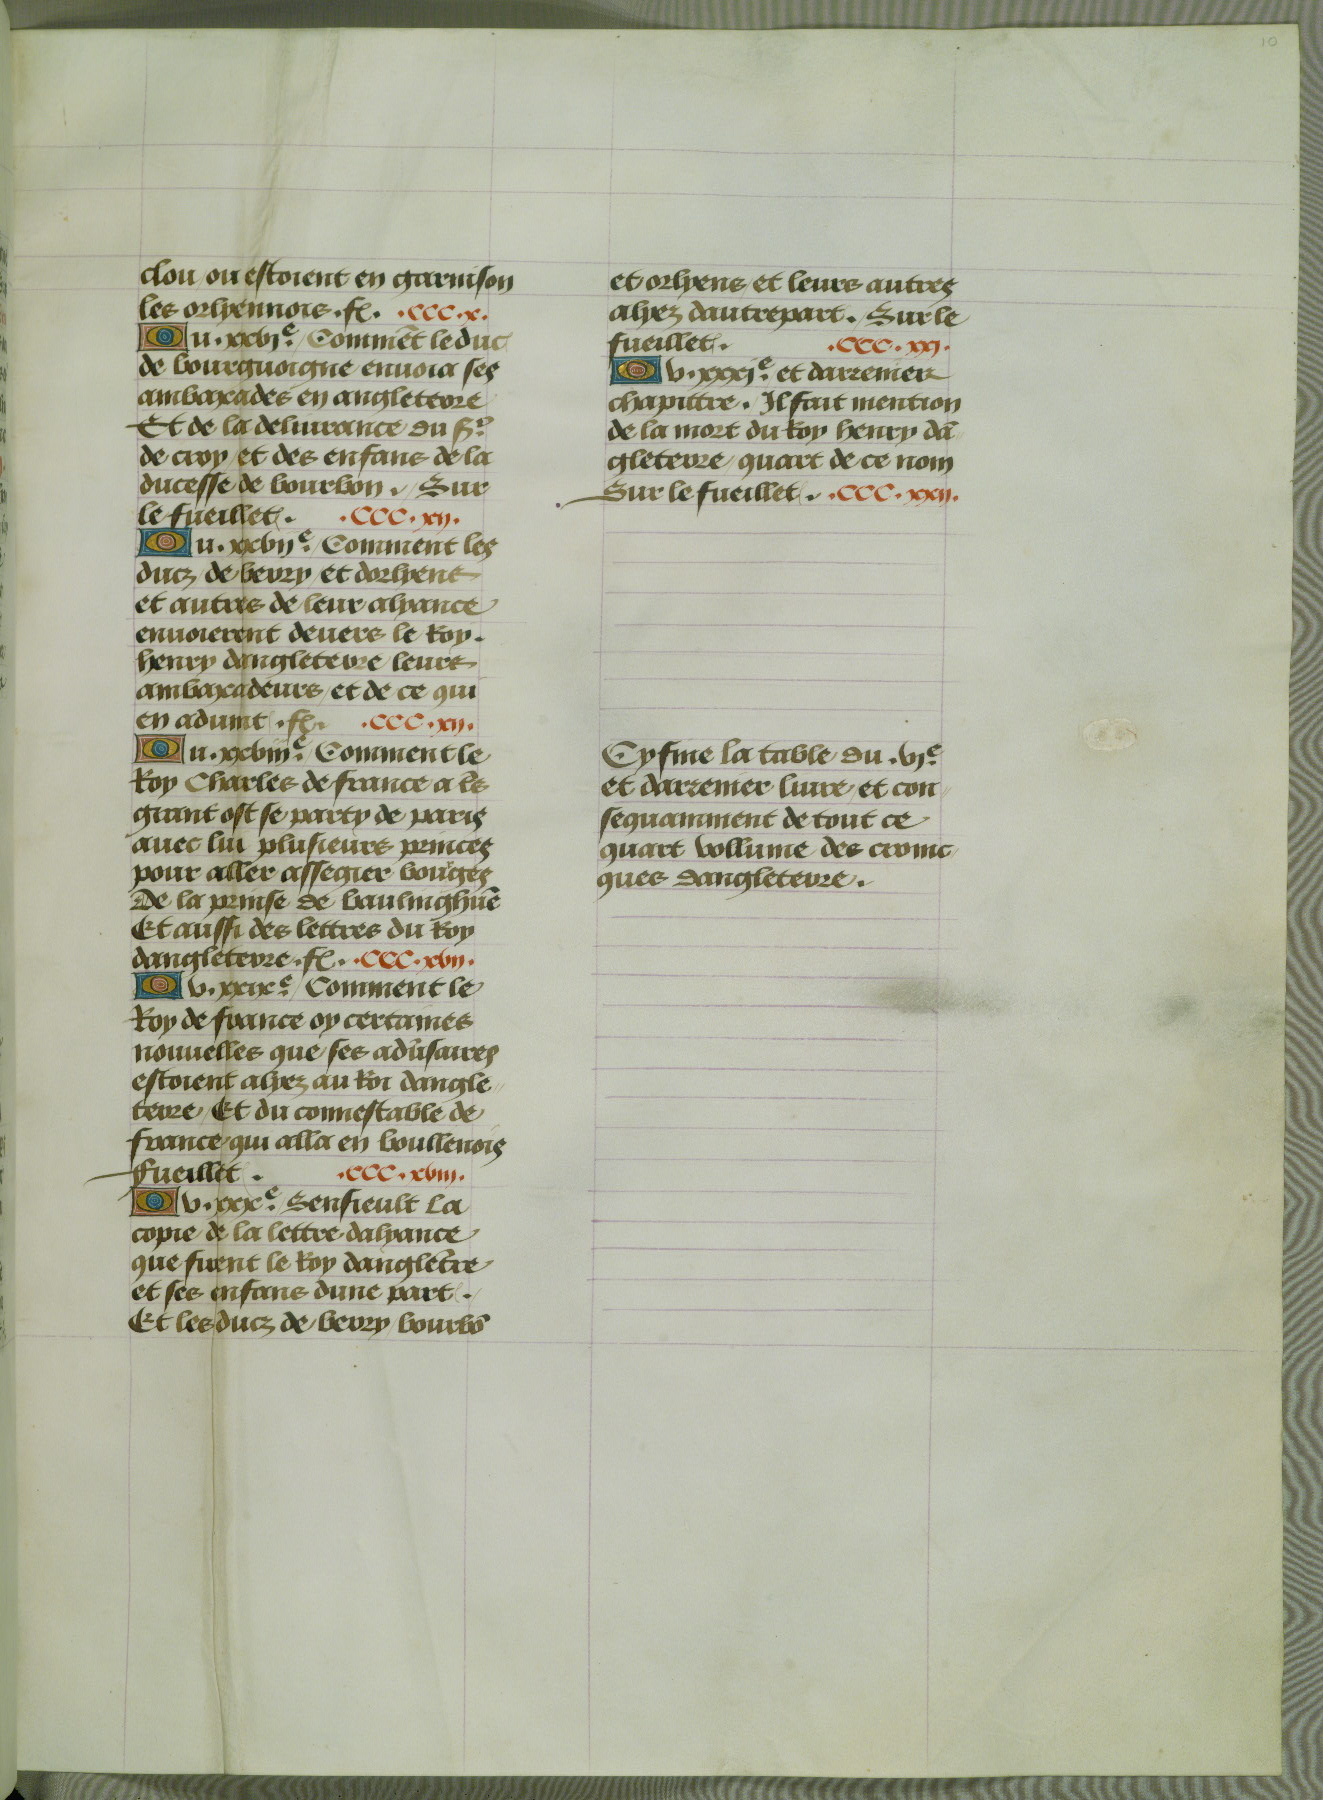 10
clou ou estoient en garnison
les orlyennois .fo. .CCC.x.
Ou .xxvie. Comment le duc
de bourguoigne enuoia ses
ambaxades en angleterre
Et de la deliurance du Sr.
de croy et des enfans de la
ducesse de bourbon . Sur
le fueillet . .CCC.xij.
Ou .xxvije. Comment les
ducz de berry et dorlyens
et autres de leur alyance
enuoierent deuers le Roy.
henry dangleterre leurs
ambaxadeurs et de ce qui
en aduint .fo. .CCC.xij.
Ou .xxviije. Comment le
Roy Charles de france a tres
grant ost se party de paris
auec lui plusieurs princes
pour aller assegier bourges
De la prinse de baulinghuē
Et aussi des lettres du Roy
dangleterre .fo. .CCC.xvij.
Ov .xxixe. Comment le
Roy de france oy certaines
nouuelles que ses adūsaires
estoient alyez au Roi dangle
terre Et du connestable de
france qui alla en boullenois
fueillet . .CCC.xviij.
Ov .xxxe. Sensieult la
copie de la lettre dalyance
que firent le Roy dangletrē
et ses enfans dune part .
Et les ducz de berry bourbō
et orlyens et leurs autres
alyez dautrepart . Sur le
fueillet . .CCC.xxj.
Ov .xxxje. et darrenier
chapittre . Il fait mention
de la mort du Roy henry dā
gleterre quart de ce nom
Sur le fueillet . .CCC.xxij.
Cy fine la table du .vje.
et darrenier liure et con
sequamment de tout ce
quart vollume des cronic
ques dangleterre .